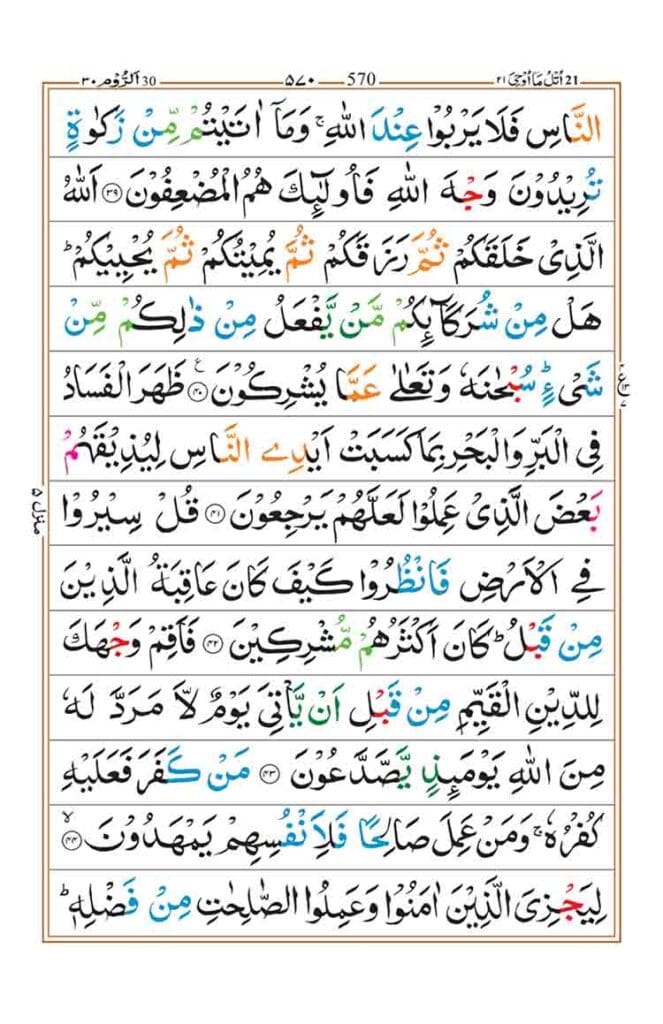 21 اُتْلُ مَاۤ اُوْحِیَ ٢١ 570 ۵۷۰ 30 اَلرُّوْم ٣٠
النَّاسِ فَلَا یَرْبُوْا عِنْدَ اللّٰهِ ۚ وَمَاۤ اٰتَیْتُمْ مِّنْ زَكٰوةٍ
تُرِیْدُوْنَ وَجْهَ اللّٰهِ فَاُولٰٓئِكَ هُمُ الْمُضْعِفُوْنَ ﴿۳۹﴾ اَللّٰهُ
الَّذِیْ خَلَقَكُمْ ثُمَّ رَزَقَكُمْ ثُمَّ یُمِیْتُكُمْ ثُمَّ یُحْیِیْكُمْ ؕ
هَلْ مِنْ شُرَكَآئِكُمْ مَّنْ یَّفْعَلُ مِنْ ذٰلِكُمْ مِّنْ
شَیْءٍ ؕ سُبْحٰنَهٗ وَتَعٰلٰی عَمَّا یُشْرِكُوْنَ ﴿۴۰﴾ ع ظَهَرَ الْفَسَادُ
فِی الْبَرِّ وَالْبَحْرِ بِمَا كَسَبَتْ اَیْدِی النَّاسِ لِیُذِیْقَهُمْ
بَعْضَ الَّذِیْ عَمِلُوْا لَعَلَّهُمْ یَرْجِعُوْنَ ﴿۴۱﴾ قُلْ سِیْرُوْا
منزل ۵
فِی الْاَرْضِ فَانْظُرُوْا كَیْفَ كَانَ عَاقِبَةُ الَّذِیْنَ
مِنْ قَبْلُ ؕ كَانَ اَكْثَرُهُمْ مُّشْرِكِیْنَ ﴿۴۲﴾ فَاَقِمْ وَجْهَكَ
لِلدِّیْنِ الْقَیِّمِ مِنْ قَبْلِ اَنْ یَّاْتِیَ یَوْمٌ لَّا مَرَدَّ لَهٗ
مِنَ اللّٰهِ یَوْمَئِذٍ یَّصَّدَّعُوْنَ ﴿۴۳﴾ مَنْ كَفَرَ فَعَلَیْهِ
كُفْرُهٗ ۚ وَمَنْ عَمِلَ صَالِحًا فَلِاَنْفُسِهِمْ یَمْهَدُوْنَ ﴿۴۴﴾ ۙ
لِیَجْزِیَ الَّذِیْنَ اٰمَنُوْا وَعَمِلُوا الصّٰلِحٰتِ مِنْ فَضْلِهٖ ؕ